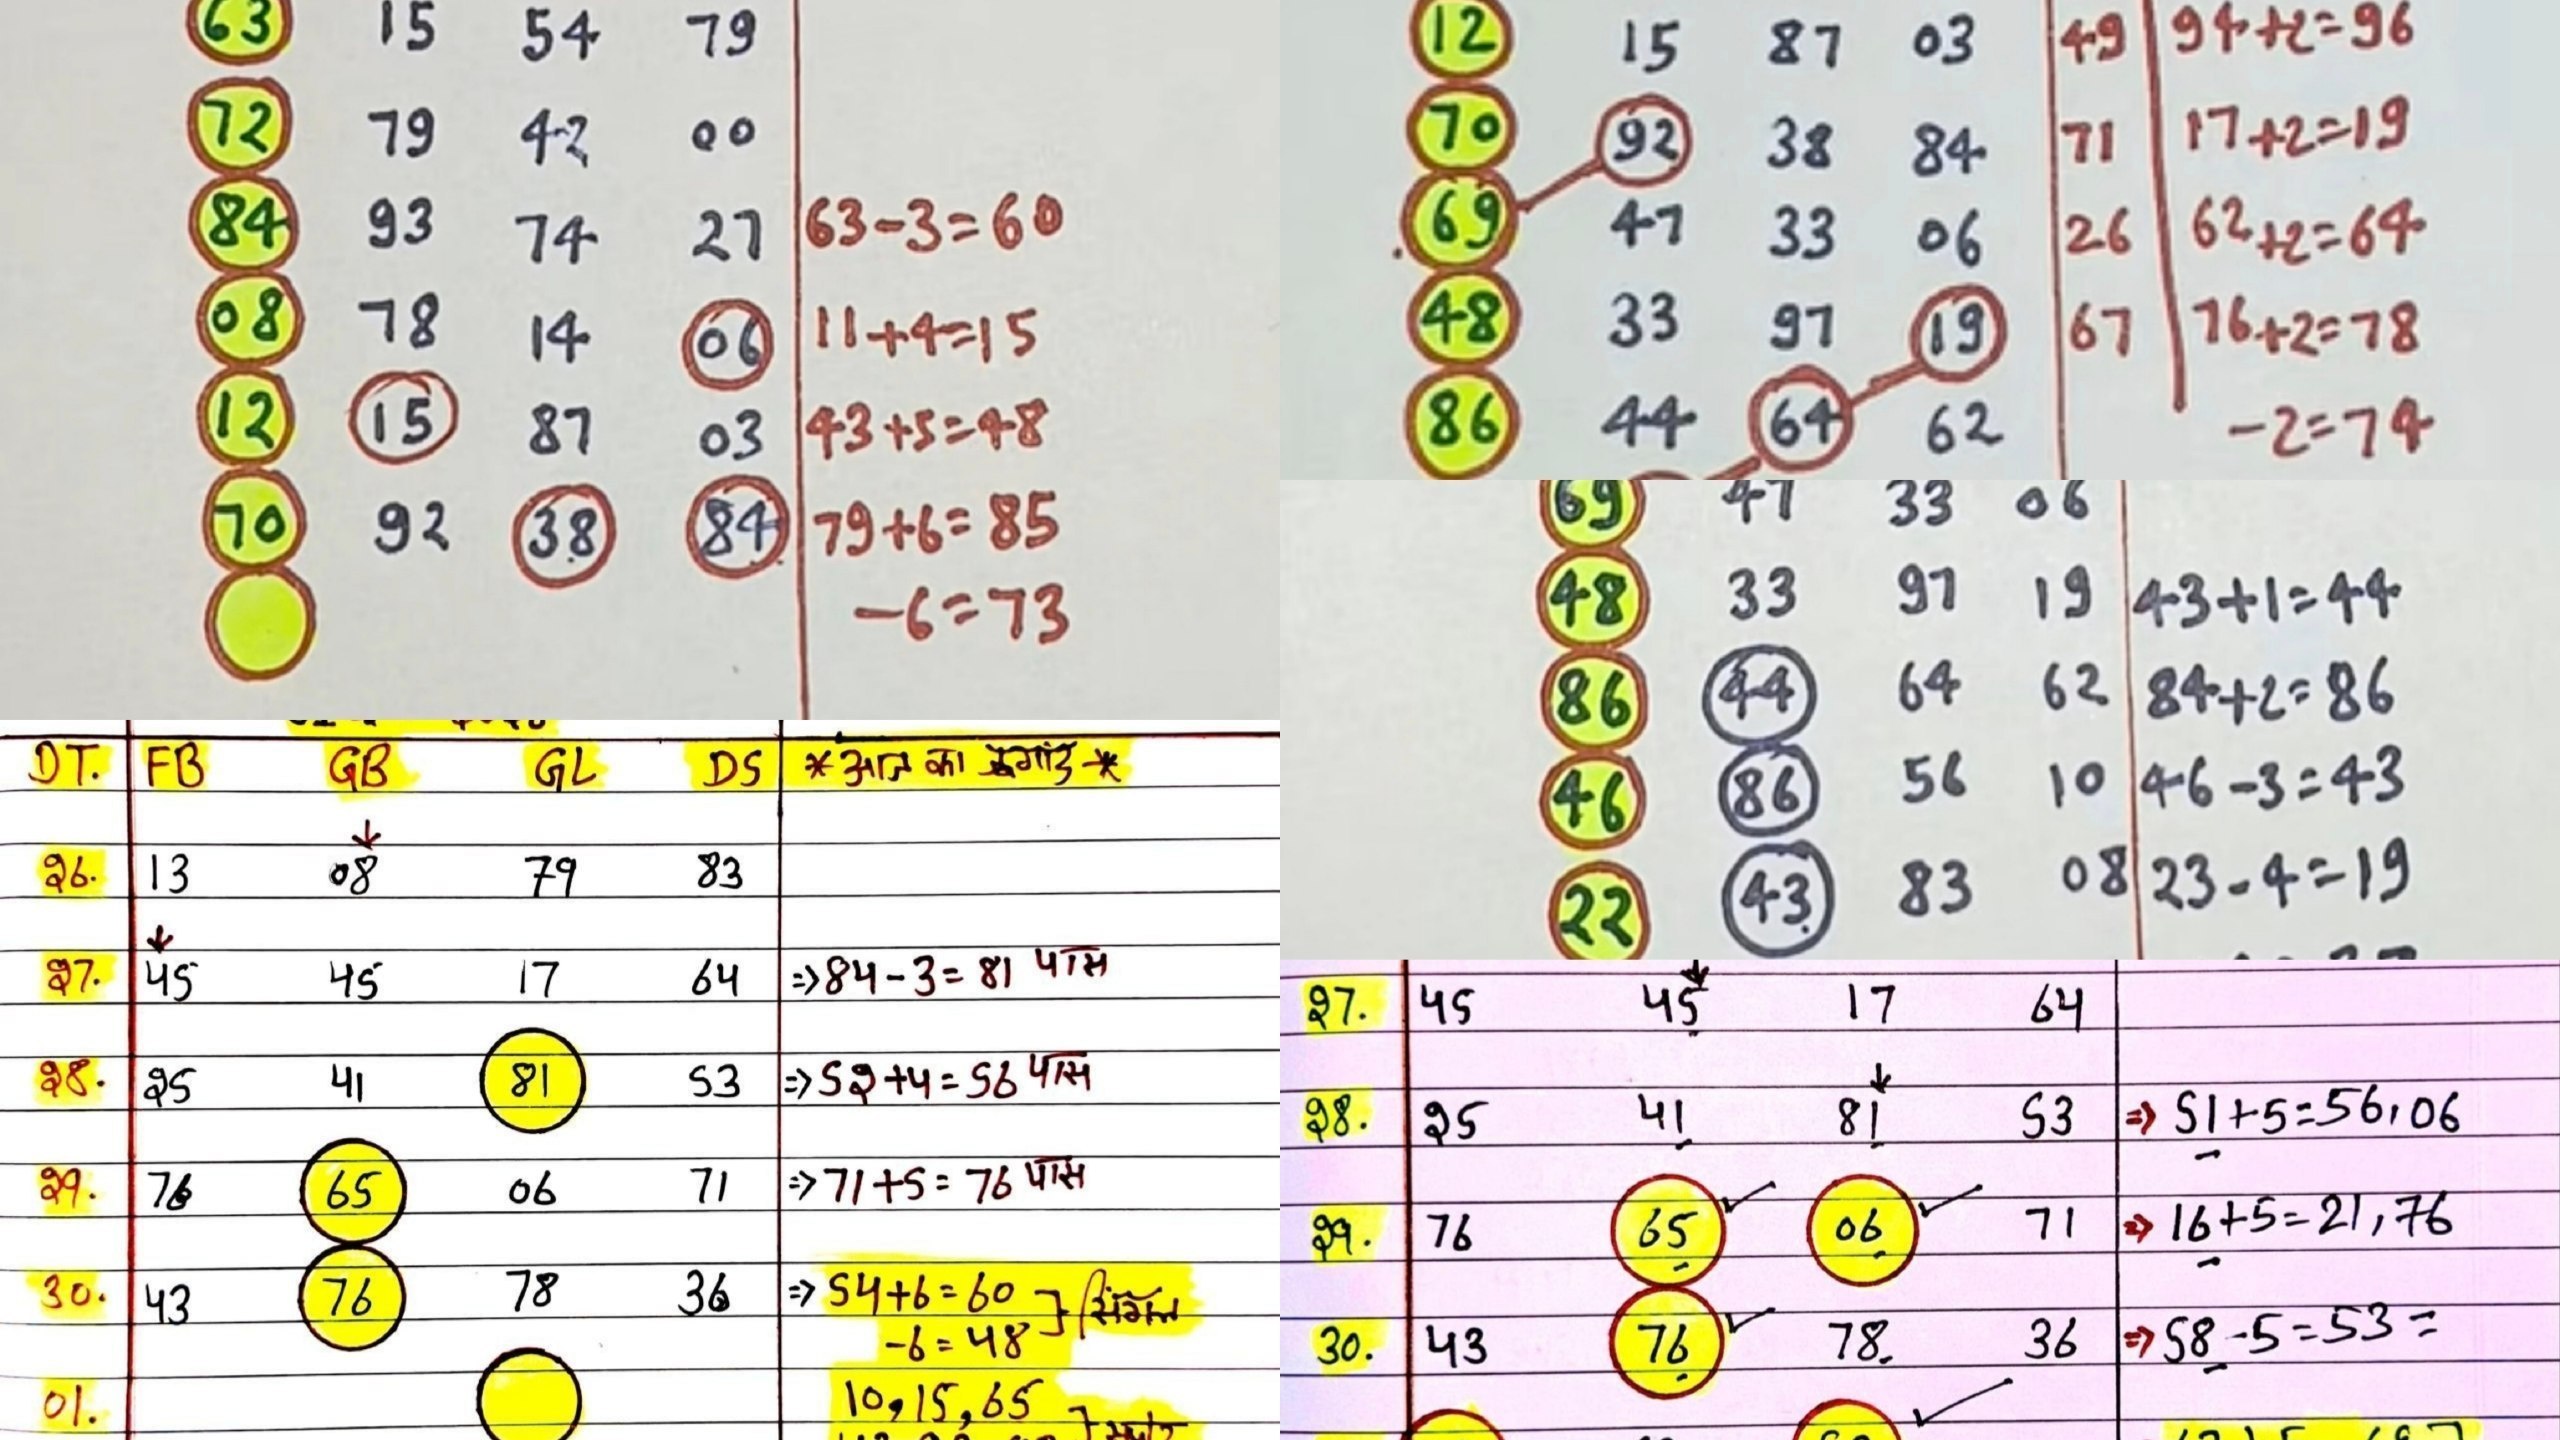 63 15 54 79
72 79 42 00
84 93 74 27 63-3=60
08 78 14 06 11+4=15
12 15 87 03 43+5=48
70 92 38 84 79+6=85
-6=73
12 15 87 03 49 94+2=96
70 92 38 84 71 17+2=19
69 47 33 06 26 62+2=64
48 33 97 19 67 76+2=78
86 44 64 62 -2=74
69 47 33 06
48 33 97 19 43+1=44
86 44 64 62 84+2=86
46 86 56 10 46-3=43
22 43 83 08 23-4=19
DT. FB GB GL DS *आज का
26. 13 08 79 83
27. 45 45 17 64 ⇒84-3=81 पास
28. 25 41 81 53 ⇒52+4=56 पास
29. 76 65 06 71 ⇒71+5=76 पास
30. 43 76 78 36 ⇒54+6=60
-6=48
01. 10,15,65
27. 45 45 17 64
28. 25 41 81 53 ⇒51+5=56,06
29. 76 65 06 71 ⇒16+5=21,76
30. 43 76 78 36 ⇒58-5=53=